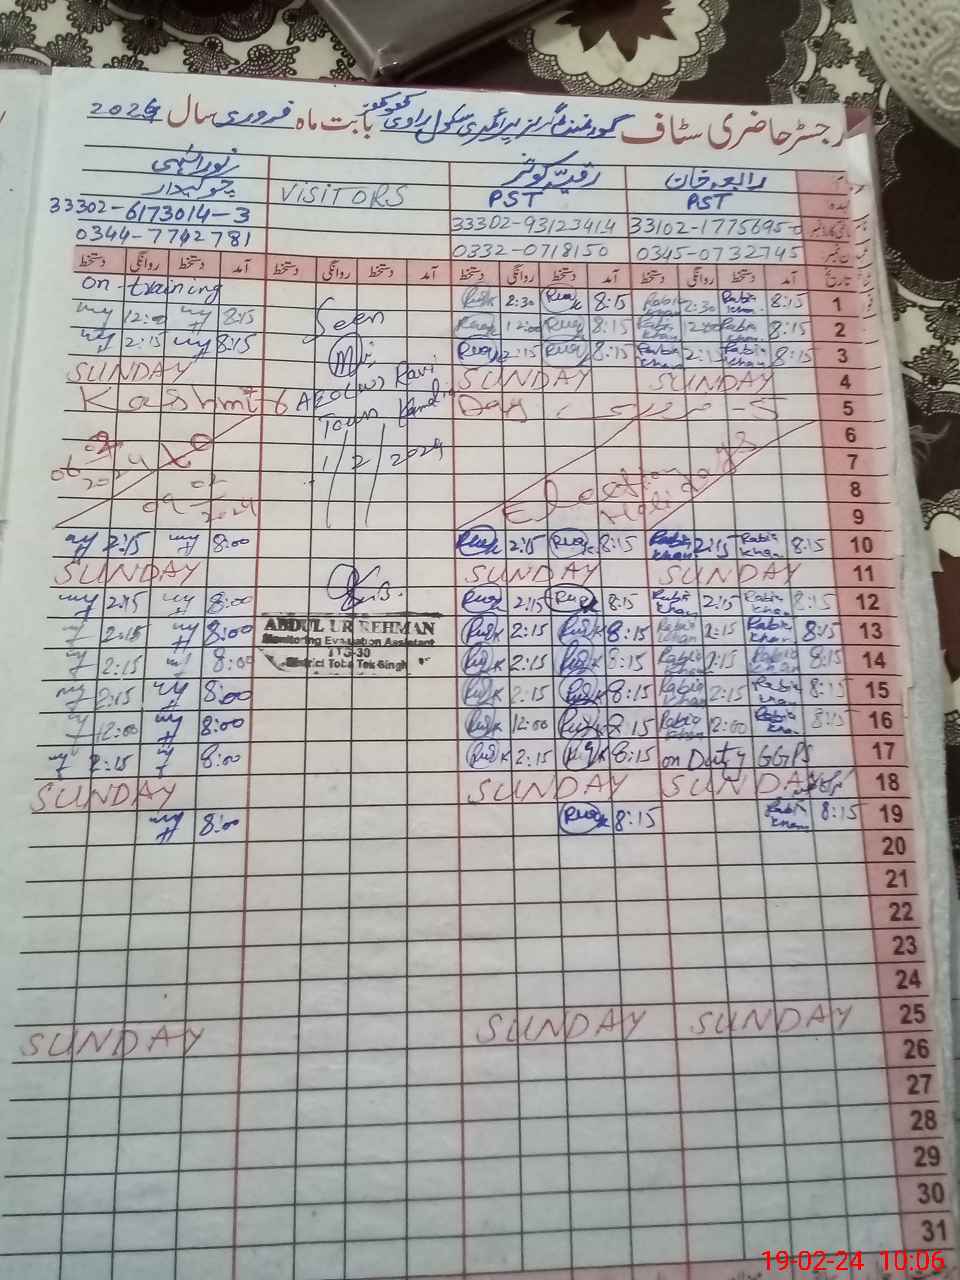 رجسٹر حاضری سٹاف گورنمنٹ گرلز پرائمری سکول راوی بابت ماہ فروری سال 2024
رابعہ خان رقیہ کوثر نور الٰہی
PST PST VISITORS چوکیدار
33102-1775695-0 33302-93123414 33302-6173014-3
0345-0732745 0332-0718150 0344-7742781
تاریخ آمد دستخط روانگی دستخط آمد دستخط روانگی دستخط آمد دستخط روانگی دستخط آمد دستخط روانگی دستخط
1 8:15 Rabia Khan 2:30 Rabia Khan 8:15 2:30 Seen on-training
2 8:15 Rabia Khan 12:00 Rabia Khan 8:15 12:00 8:15 12:00
3 8:15 Rabia Khan 2:15 Rabia Khan 8:15 2:15 8:15 2:15
4 SUNDAY SUNDAY SUNDAY
5 Kashmir Day
AEO(W) Ravi
Town
6
7 1/2/2024
8 Election Holidays
06 02 2024 To 09 02 2024
9
10 8:15 Rabia Khan 2:15 Rabia Khan 8:15 2:15 8:00 2:15
11 SUNDAY SUNDAY SUNDAY
12 8:15 Rabia Khan 2:15 Rabia Khan 8:15 2:15 8:00 2:15
ABDUL UR REHMAN
Monitoring Evaluation Assistant
TTS-30
District Toba Tek Singh
13 8:15 Rabia Khan 2:15 Rabia Khan 8:15 2:15 8:00 2:15
14 8:15 Rabia Khan 2:15 Rabia Khan 8:15 2:15 8:00 2:15
15 8:15 Rabia Khan 2:15 Rabia Khan 8:15 2:15 8:00 2:15
16 8:15 Rabia Khan 12:00 Rabia Khan 8:15 12:00 8:00 12:00
17 on Duty GGPS 8:15 2:15 8:00 2:15
18 SUNDAY SUNDAY SUNDAY
19 8:15 Rabia Khan 8:15 8:00
20
21
22
23
24
25 SUNDAY SUNDAY SUNDAY
26
27
28
29
30
31
19-02-24 10:06